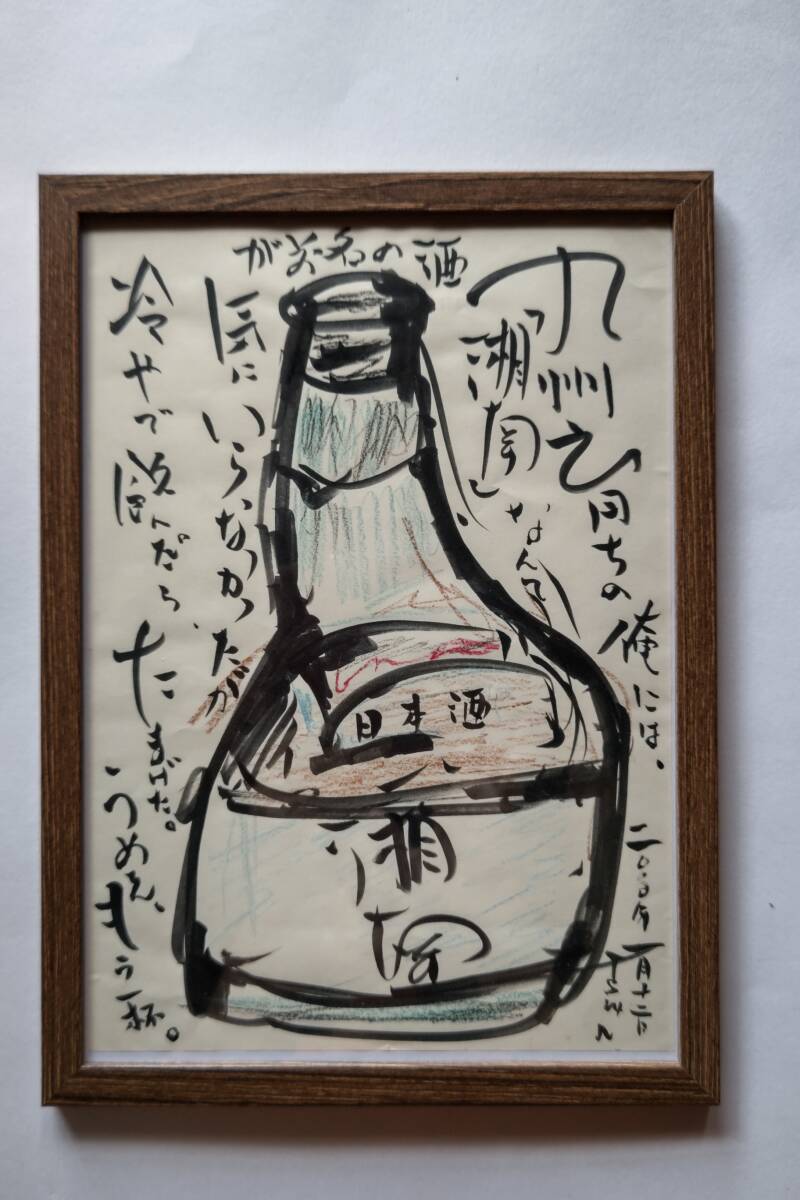 九州育ちの俺には、
「湘南」なんて
酒の名前が
気にいらなかったが
冷やで飲んだら、たまげた。
うめえ、もう一杯。
日本酒
湘南
二〇〇六年
一月十二日